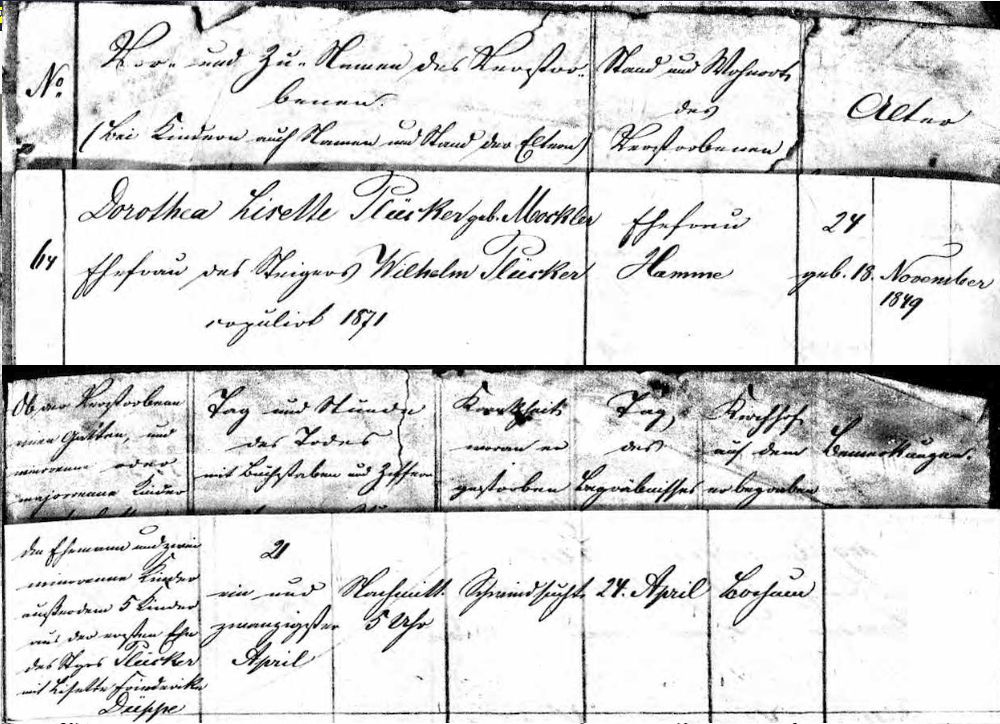 No.
Vor- und Zu-Namen des Verstor-
benen.
(bei Kindern auch Namen und Stand der Eltern)
Stand und Wohnort
des
Verstorbenen
Alter
64
Dorothea Lisette Plücker geb. Mockler
Ehefrau des Steigers Wilhelm Plücker
copulirt 1871
Ehefrau
Hamme
24
geb. 18. November
1849
Ob der Verstorbene
einen Gatten, und
minorenne oder
majorenne Kinder
Tag und Stunde
des Todes
mit Buchstaben und Ziffern
Krankheit
woran er
gestorben
Tag
des
Begräbnisses
Kirchhof
auf dem
er begraben
Bemerkungen.
den Ehemann und zwei
minorenne Kinder
außerdem 5 Kinder
aus der ersten Ehe
des Stgrs Plücker
mit Lisette Friederike
Düppe
21
ein und
zwanzigster
April
Nachmitt.
5 Uhr
Schwindsucht
24. April
Bochum